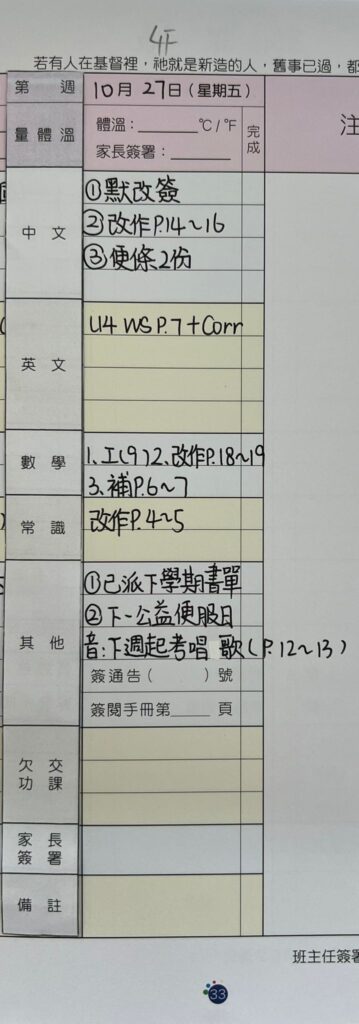 4F
若有人在基督裡，祂就是新造的人，舊事已過，都
第 週 10月27日（星期五）
注
量體溫 體溫：______℃/℉ 完成
家長簽署：______
中文 ①默改簽
②改作P.14~16
③便條2份
英文 U4 WS P.7+Corr
數學 1、工(9) 2、改作P.18~19
3、補P.6~7
常識 改作P.4~5
其他 ①已派下學期書單
②下一公益便服日
音：下週起考唱 歌(P.12~13)
簽通告（ ）號
簽閱手冊第____頁
欠交功課
家長簽署
備註
班主任簽署
33